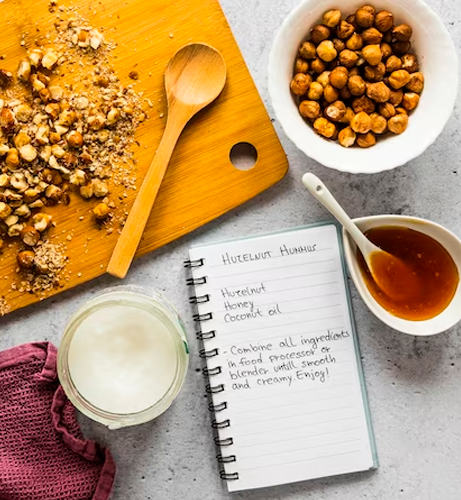 Huzelnut Hummus
Huzelnut
Honey
Coconut oil
- Combine all ingredients
in food processor or
blender untill smooth
and creamy. Enjoy!